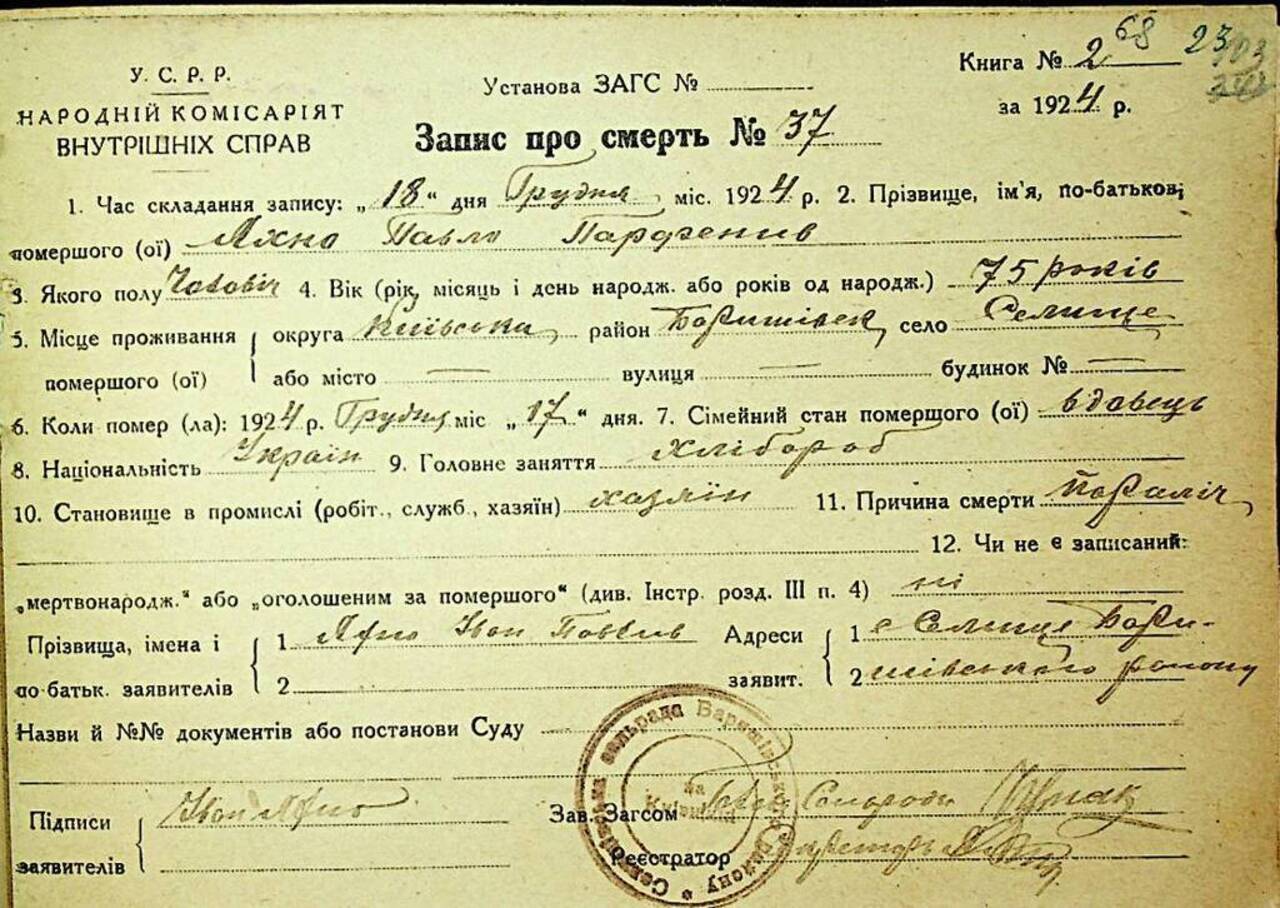 68 23
У. С. Р. Р.
НАРОДНІЙ КОМІСАРІЯТ
ВНУТРІШНІХ СПРАВ
Установа ЗАГС №
Книга № 2
за 1924 р.
Запис про смерть № 37
1. Час складання запису: „18“ дня Грудня міс. 1924 р. 2. Прізвище, ім'я, по-батькові
помершого (ої) Яхно Павло
3. Якого полу Чоловіч 4. Вік (рік, місяць і день народж. або років од народж.) 75 років
5. Місце проживання округа Київська район Баришівск село Селище
помершого (ої) або місто — вулиця — будинок № —
6. Коли помер (ла): 1924 р. Грудня міс „17“ дня. 7. Сімейний стан помершого (ої) вдовець
8. Національність Україн 9. Головне заняття Хлібороб
10. Становище в промислі (робіт., служб., хазяїн) хазяїн 11. Причина смерти Параліч
12. Чи не є записаний:
„мертвонародж.“ або „оголошеним за помершого“ (див. Інстр. розд. III п. 4) ні
Прізвища, імена і 1 Яхно Іван Павлів Адреси 1 с Селище Бари-
по-батьк. заявителів 2 заявит. 2 шівського району
Назви й №№ документів або постанови Суду
Підписи Іван Яхно Зав. Загсом
заявителів Реєстратор
сельрада Баришівського району * на Київщині